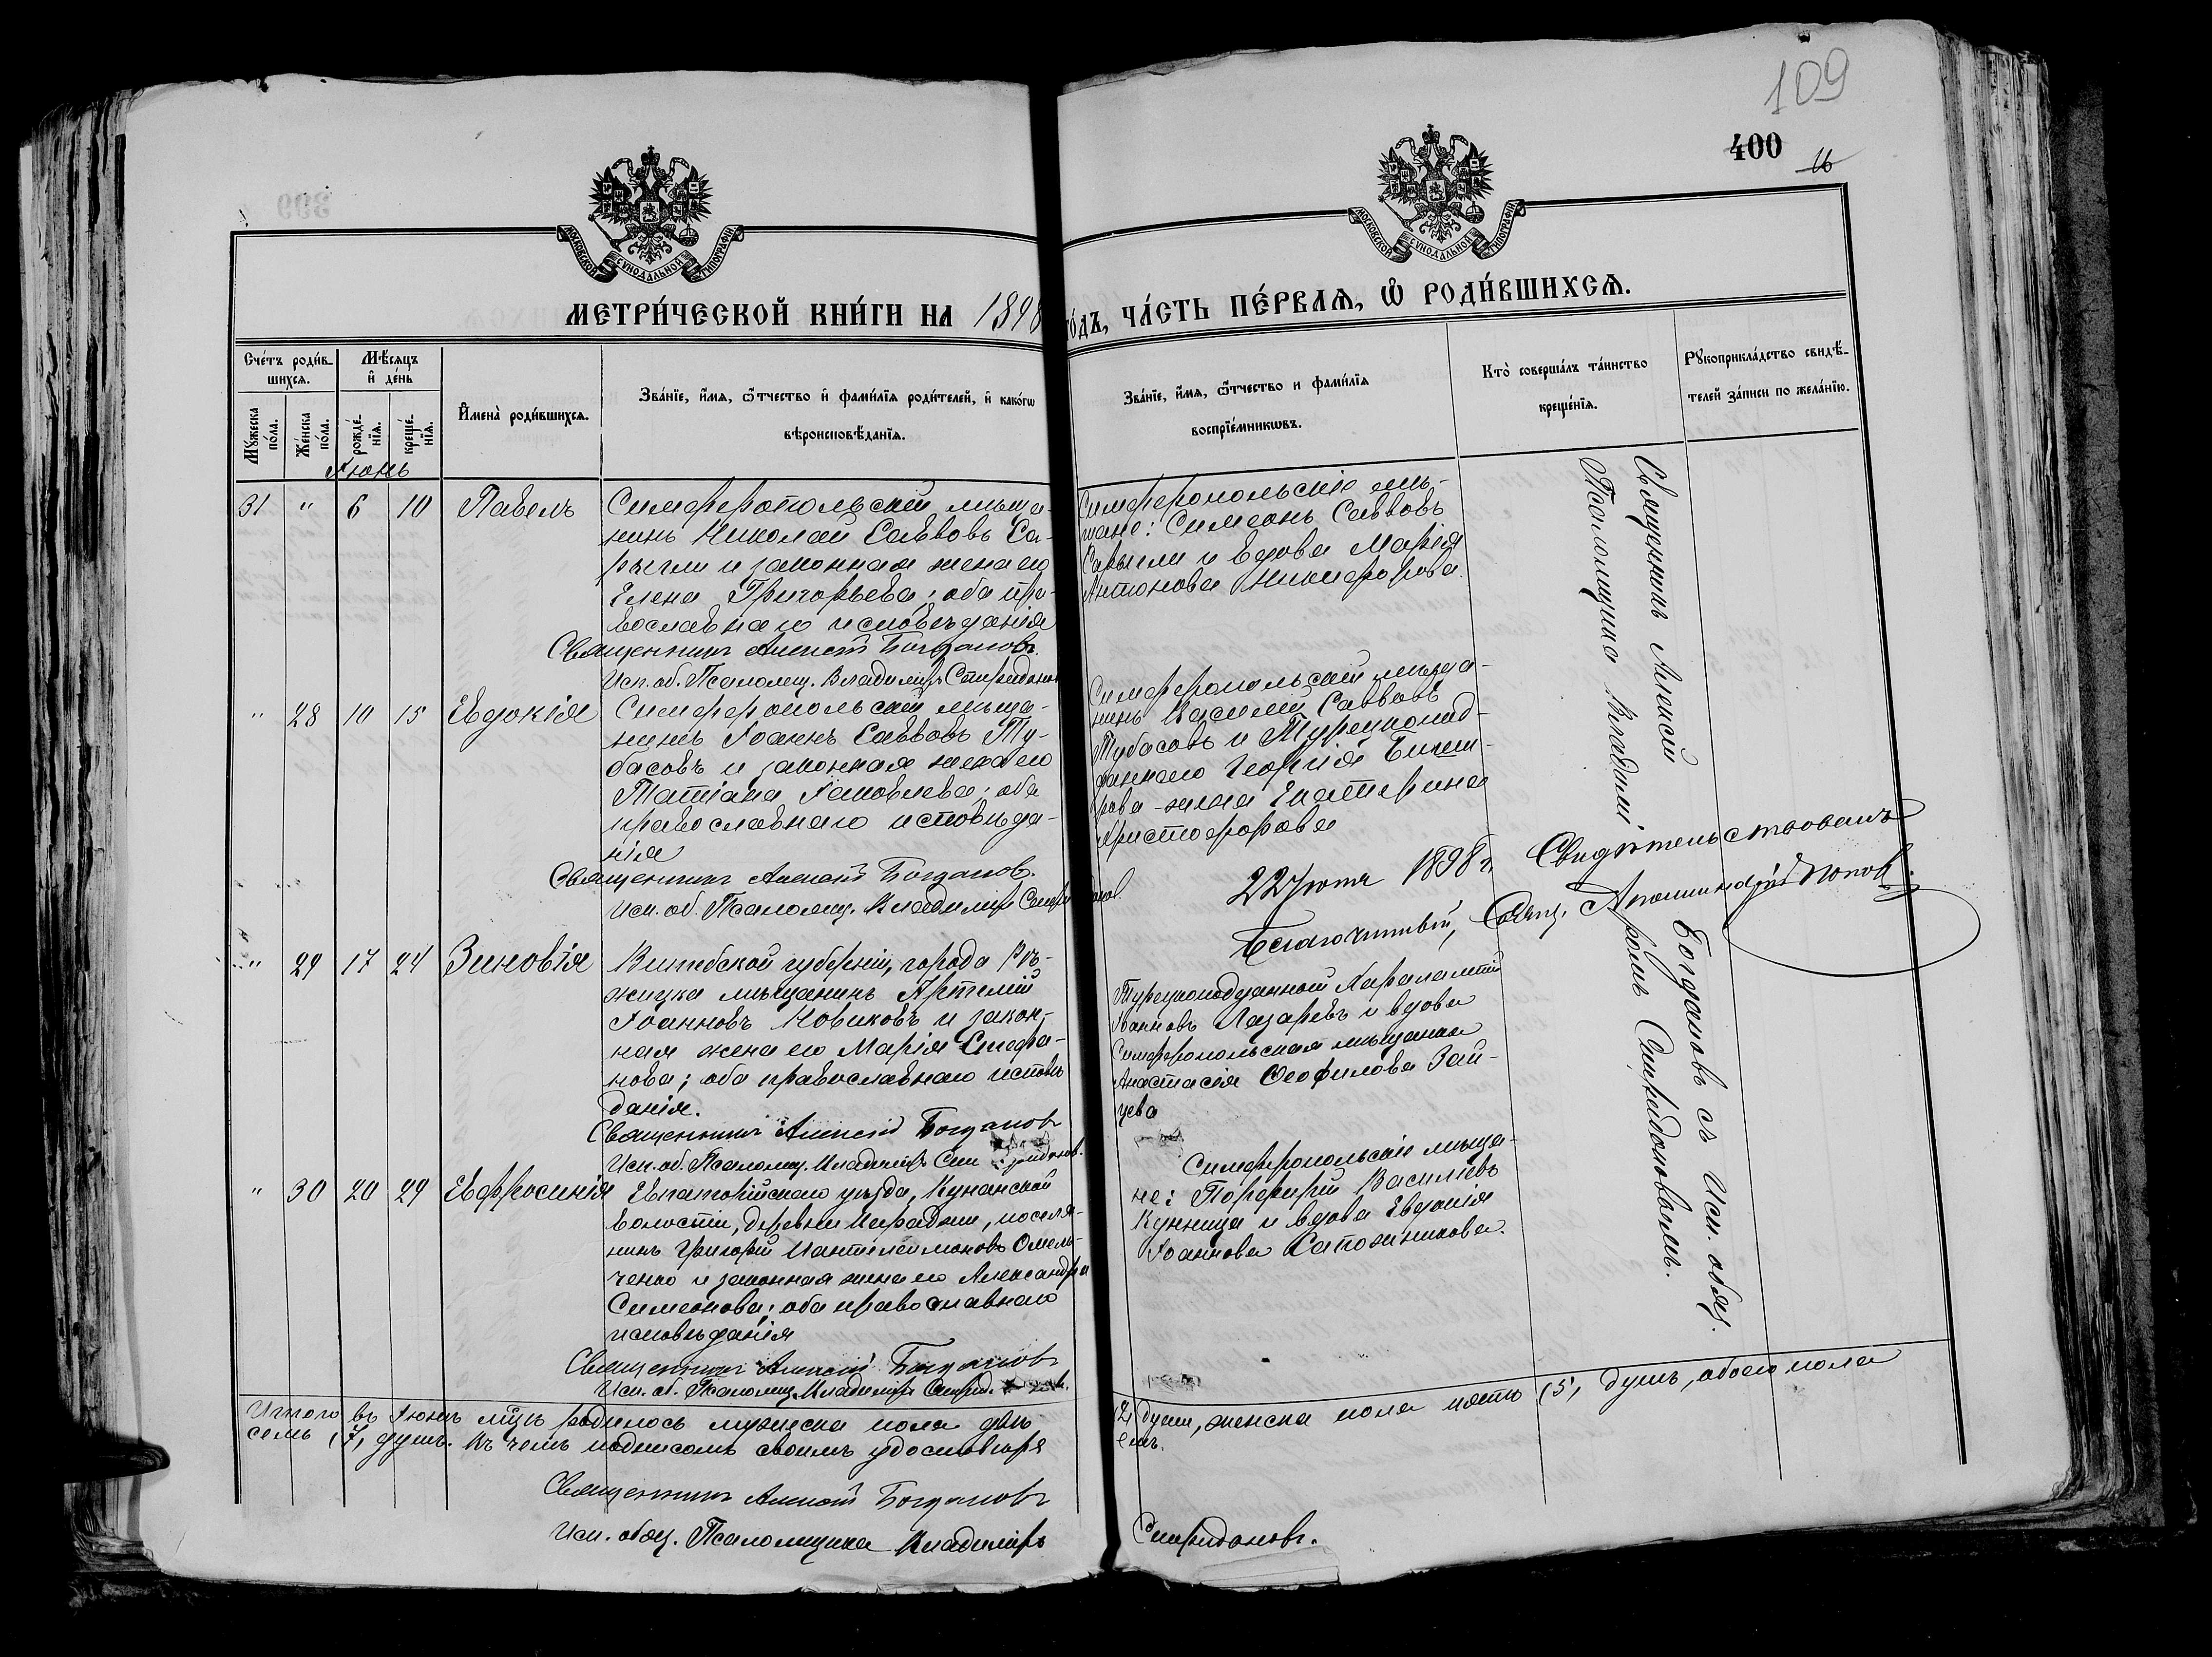 109
400
16
МОСКОВСКОЙ СУНОДАЛЬНОЙ ТИПОГРАФІИ
МОСКОВСКОЙ СУНОДАЛЬНОЙ ТИПОГРАФІИ
МЕТРИ́ЧЕСКОЙ КНИ́ГИ НА 1898
го́дъ, ЧА́СТЬ ПЕ́РВАѦ, Ѡ҆ РОДИ́ВШИХСѦ.
Сче́тъ роди́в-
шихсѧ.
Мꙋжеска
по́ла.
Же́нска
по́ла.
Мѣ́сѧцъ
и҆ де́нь
рожде́-
нїѧ.
креще́-
нїѧ.
И҆мена̀ роди́вшихсѧ.
Зва́нїе, и҆́мѧ, ѻ҆́тчество и҆ фами́лїѧ роди́телей, и҆ како́гѡ
вѣроисповѣ́данїѧ.
Зва́нїе, и҆́мѧ, ѻ҆́тчество и фами́лїѧ
воспрїе́мникѡвъ.
Кто̀ соверша́лъ та́инство
креще́нїѧ.
Рꙋкоприкла́дство свидѣ́-
телей за́писи по жела́нїю.
Іюнь
31 " 6 10 Павелъ
Симферопольскій мѣща-
нинъ Николай Савовъ Са-
рыгли и законная жена его
Елена Григорьева; оба пра-
вославнаго исповѣданія
Священникъ Алексій Богдановъ.
Исп. об. Псаломщ. Владимiръ Спиридонов
Симферопольскіе мѣ-
щане: Симеонъ Саввовъ
Сарыгли и вдова Марія
Антонова Никифорова.
" 28 10 15 Евдокія
Симферопольскій мѣща-
нинъ Іоаннъ Савовъ Ту-
басовъ и законная жена его
Татіана Іаковлева; оба
православнаго исповѣда-
нія
Священникъ Алексій Богданов.
Исп. об. Псаломщ. Владиміръ Спиридонов.
Симферопольскій мѣща-
нинъ Василій Саввовъ
Тубасовъ и Турецкопод-
даннаго Георгія
жена Екатерина
Христофорова
22 Іюля 1898 г. Свидѣтельствовалъ
Благочинный, Свящ. Аполлинарій Попов.
" 29 17 24 Зиновія
Витебской губерніи, города Рѣ-
жицка мѣщанинъ Артемій
Іоанновъ Новиковъ и закон-
ная жена его Марія Стефа-
нова; оба православнаго исповѣ
данія.
Священникъ Алексій Богдановъ
Исп. об. Псаломщ. Владиміръ Спиридонов.
Турецкоподданный Харалампій
Іоанновъ Лазаревъ и вдова
Симферопольская мѣщанка
Анастасія Ѳеофилова Зай-
цева
" 30 20 29 Евфросинія
Евпаторійскаго уѣзда,
волости, деревни поселя-
нинъ Григорій Пантелеимоновъ Омель-
ченко и законная жена его Александра
Симеонова; оба православнаго
исповѣданія
Священникъ Алексій Богдановъ
Исп. об. Псаломщ. Владиміръ Спирид.
Симферопольскіе мѣща-
не: Порфирій Василіевъ
Куница и вдова Евдокія
Іоаннова Сапожникова.
Священникъ Алексій Богдановъ съ Исп. обяз.
Псаломщика Владиміромъ Спиридоновымъ.
Итого въ Іюнѣ м-цѣ родилось мужеска пола двѣ (2) души, женска пола пять (5) душъ, обоего пола
семь (7) душъ. Въ чемъ подписомъ своимъ удостовѣряемъ.
Священникъ Алексій Богдановъ
Исп. обяз. Псаломщика Владиміръ Спиридоновъ.